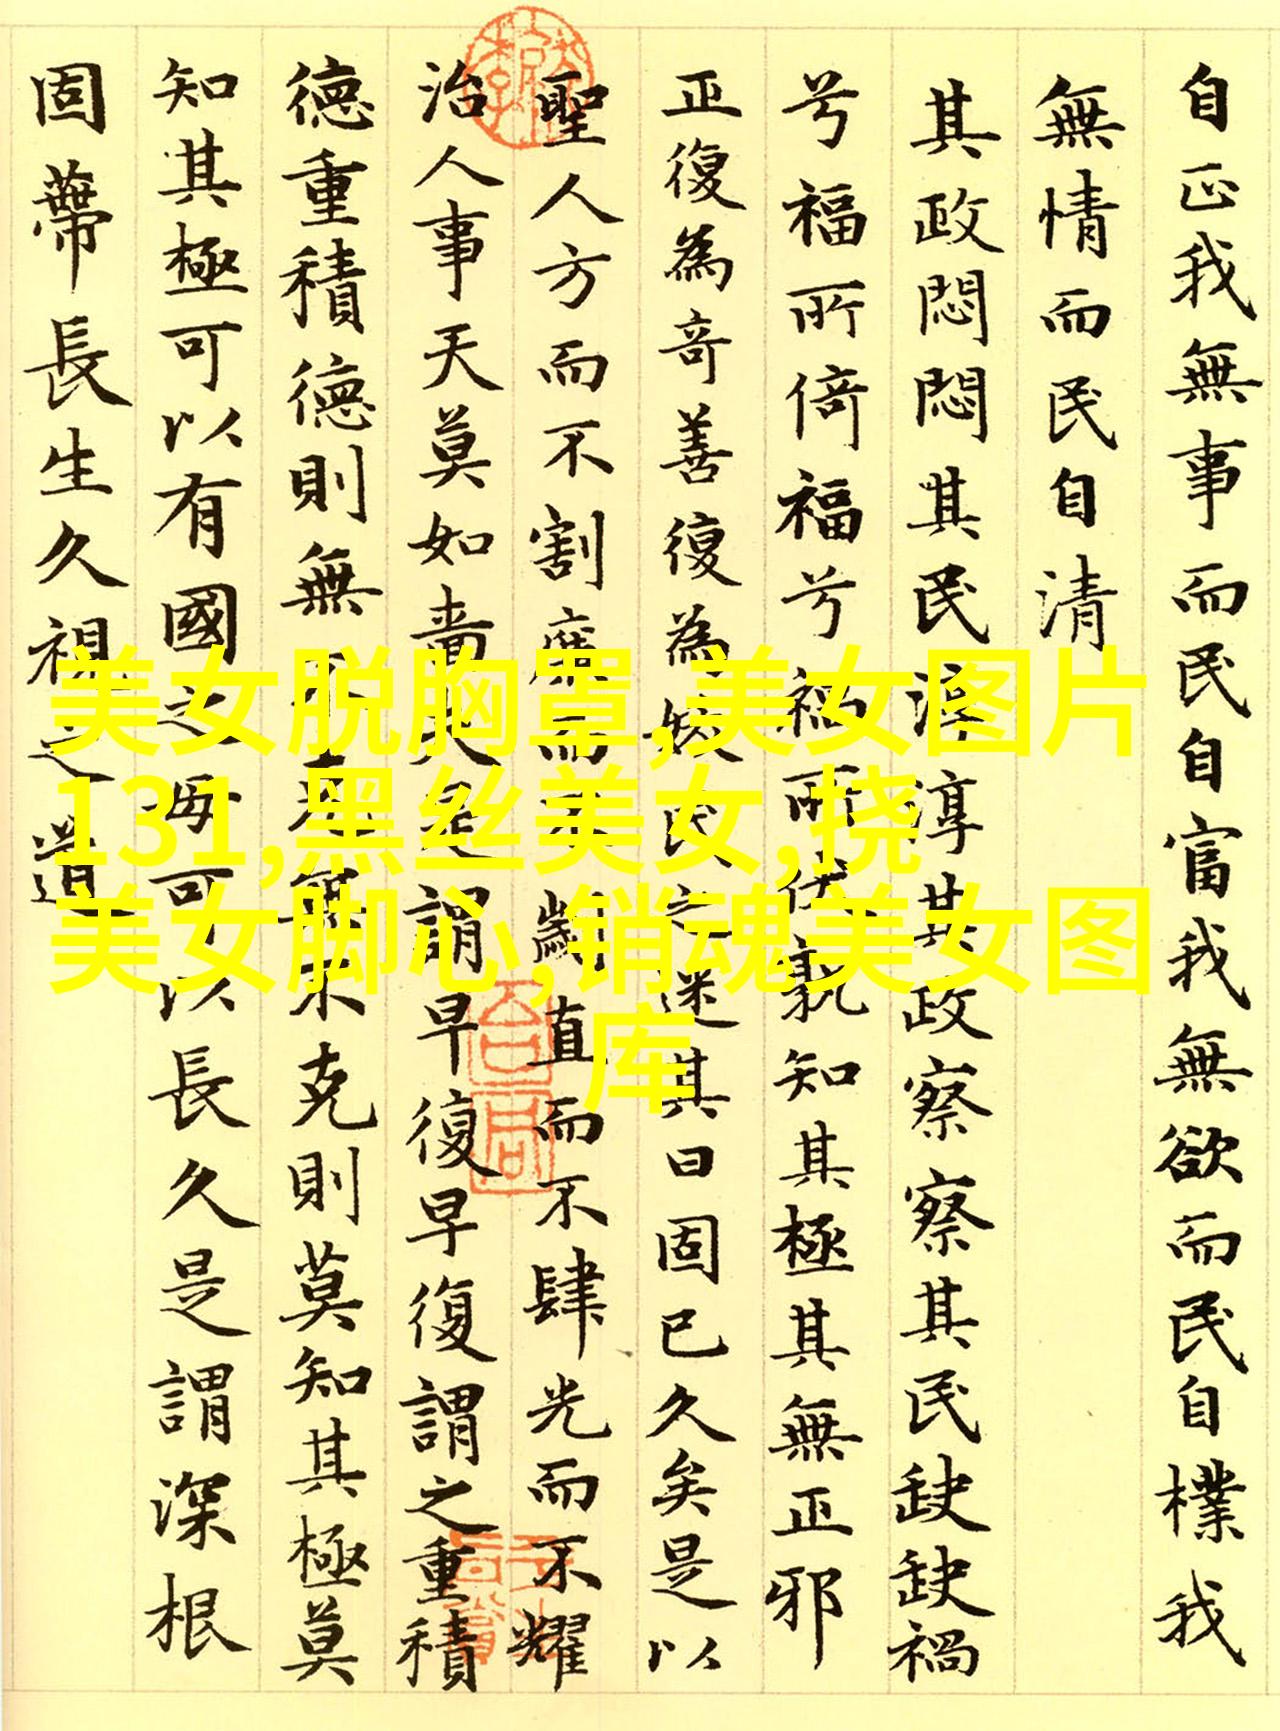 自正我無事而民自富我無欲而民自樸我
無情而民自清
其政悶悶其民淳淳其政察察其民缺缺禍
兮福所倚福兮禍所伏孰知其極其無正邪
正復為奇善復為妖民之迷其日固已久矣是以
聖人方而不割廉而不劌直而不肆光而不耀
治人事天莫如嗇夫是謂早復早復謂之重積
德重積德則無不克無不克則莫知其極莫
知其極可以有國之母可以長久是謂深根
固蔕長生久視之道
美女脱胸罩,美女图片
131,黑丝美女,挠
美女脚心,销魂美女图
库